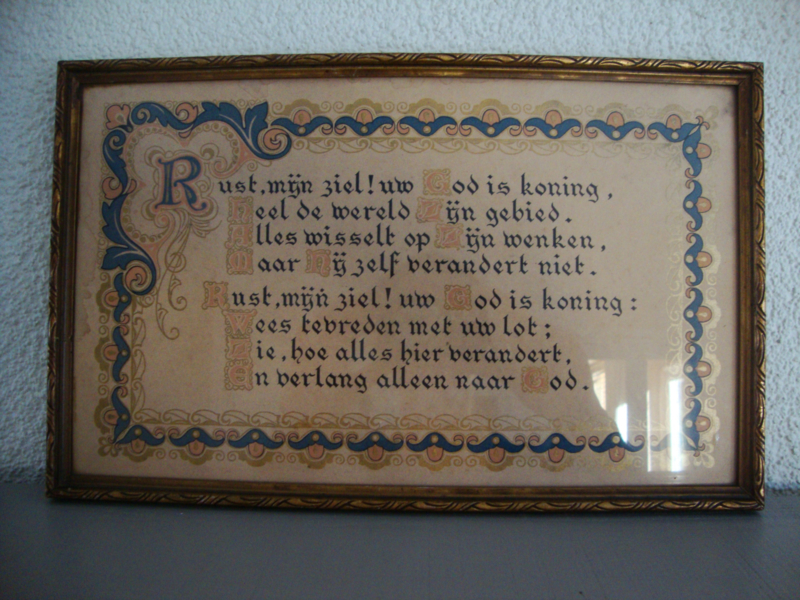 Rust, mijn ziel! uw God is koning,
Heel de wereld Zijn gebied.
Alles wisselt op Zijn wenken,
Maar Hij zelf verandert niet.
Rust, mijn ziel! uw God is koning:
Wees tevreden met uw lot;
Zie, hoe alles hier verandert,
En verlang alleen naar God.